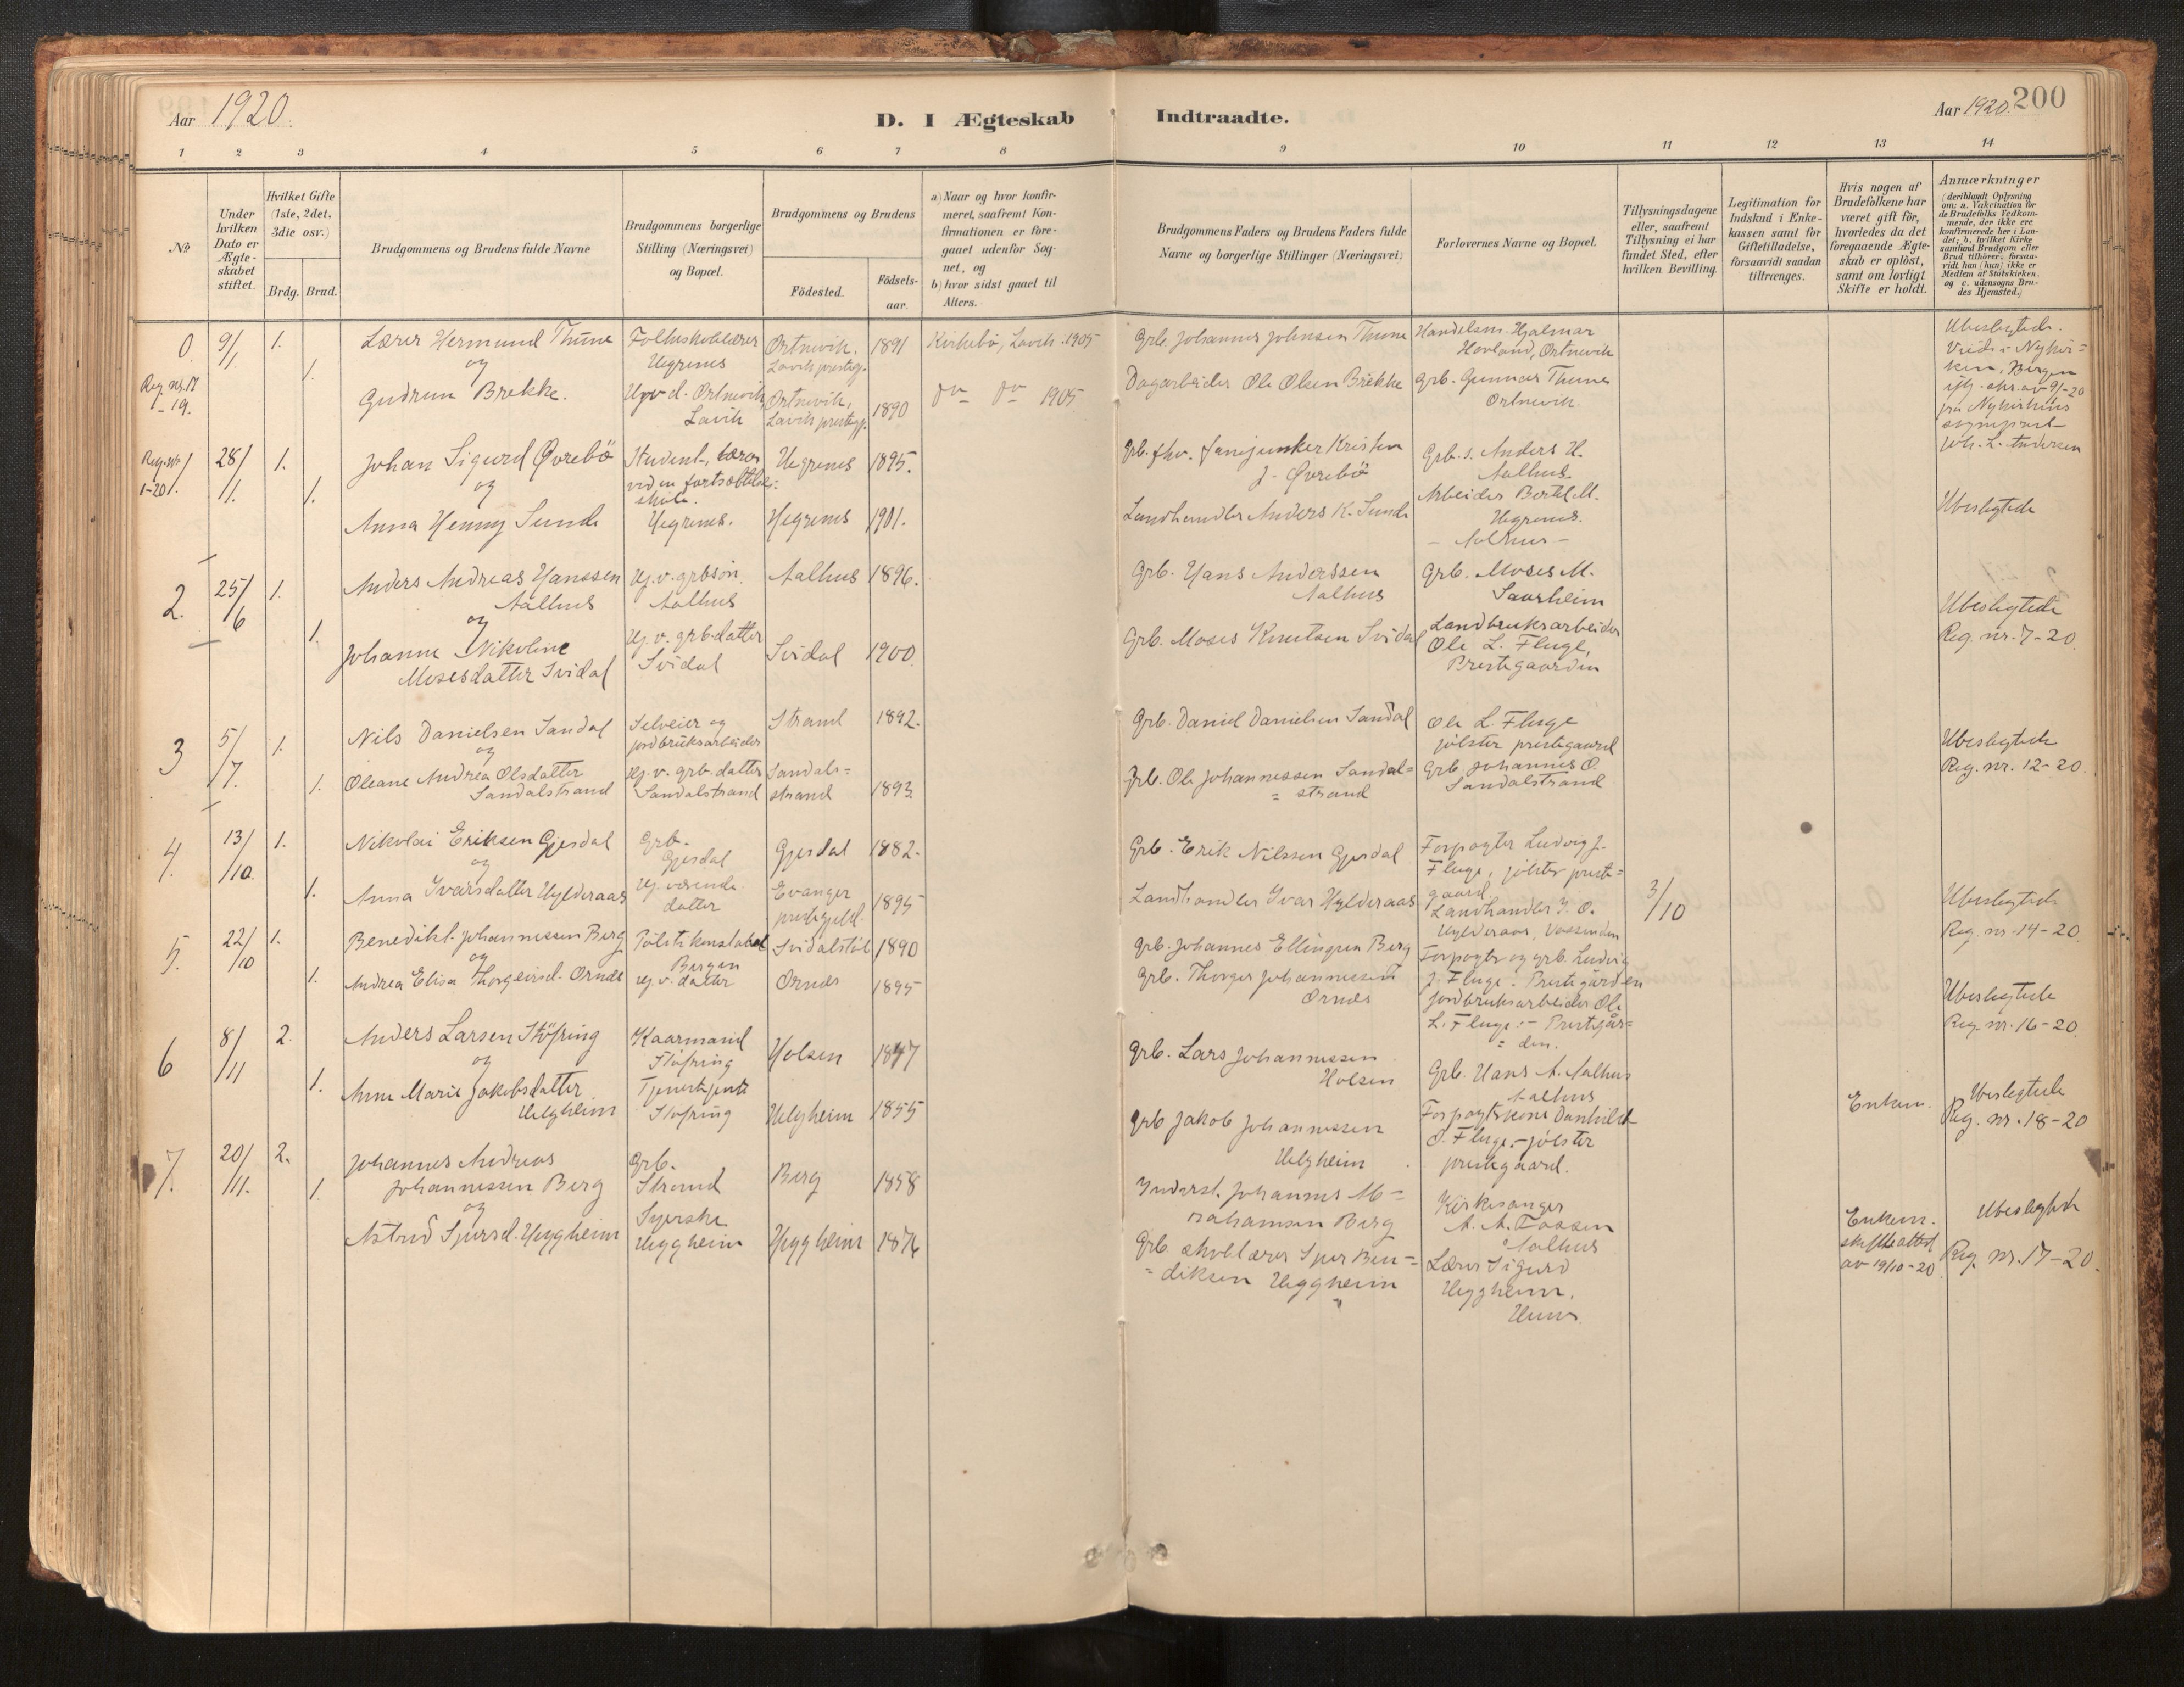 Aar 1920.
D. I Ægteskab Indtraadte.
Aar 1920. 200
1 2 3 4 5 6 7 8 9 10 11 12 13 14
No.
Under hvilken Dato er Ægteskabet stiftet.
Hvilket Gifte (1ste, 2det, 3die osv.)
Brdg. Brud.
Brudgommens og Brudens fulde Navne
Brudgommens borgerlige Stilling (Næringsvei) og Bopæl.
Brudgommens og Brudens
Födested.
Födsels-aar.
a) Naar og hvor konfir-
meret, saafremt Kon-
firmationen er fore-
gaaet udenfor Sog-
net, og
b) hvor sidst gaaet til
Alters.
Brudgommens Faders og Brudens Faders fulde
Navne og borgerlige Stillinger (Næringsvei)
Forlovernes Navne og Bopæl.
Tillysningsdagene
eller, saafremt
Tillysning ei har
fundet Sted, efter
hvilken Bevilling.
Legitimation for
Indskud i Enke-
kassen samt for
Giftetilladelse,
forsaavidt saadan
tiltrænges.
Hvis nogen af
Brudefolkene har
været gift för,
hvorledes da det
foregaaende Ægte-
skab er oplöst,
samt om lovligt
Skifte er holdt.
Anmærkninger
(deriblandt Oplysning
om: a. Vakcination for
de Brudefolks Vedkom-
mende, der ikke ere
konfirmerede her i Lan-
det; b. hvilket Kirke
samfund Brudgom eller
Brud tilhörer, forsaa-
vidt han (hun) ikke er
Medlem af Statskirken,
og c. udensogns Bru-
des Hjemsted.)
0 9/1 1. Lærer Hermund Thune Folkeskolelærer Ortnevik. 1891 Kirkebö, Lavik. 1905
og Helgrenes Lavik prestegj.
Reg. nr. 17 -19. 1. Gudrun Brekke. Ortnevik Lavik Ortnevik, Lavik prestegj. 1890 do do 1905
Grb. Johannes Johnsen Thune Handelsm. Hjalmar
Hovland, Ortnevik
Dagarbeider Ole Olsen Brekke Grb. Gunnar Thune
Ortnevik
Ubeslegtede.
Viede i Nykir=
ken, Bergen
iflg. skr. av 9/1-20
fra Nykirkens
sogneprest
Joh. L. Andersen
Reg. nr. 1-20 1. 28/1. 1. Johan Sigurd Øvrebö Student, lærer Helgrenes 1895.
og ved en fortsættelses=
skole.
1. Anna Henny Sunde Helgrenes. Helgrenes 1901.
Grb. fhv. fanejunker Kristen Grb. s. Anders H.
J. Øvrebö Aalhus.
Arbeider Bertel M.
Landhandler Anders K. Sunde Helgrenes.
- Aalhus -
Ubeslegtede
2. 25/6 1. Anders Andreas Hanssen Hj. v. grbsön. Aalhus 1896.
Aalhus Aalhus
og
1. Johanne Nikoline Hj. v. grb.datter Svidal 1900.
Mosesdatter Svidal Svidal
Grb. Hans Anderssen Grb. Moses M.
Aalhus Saarheim
Landbruksarbeider
Grb. Moses Knutsen Svidal Ole L. Fluge,
Prestegaarden
Ubeslegtede
Reg. nr. 7-20.
3 5/7. 1. Nils Danielsen Sandal Selveier og Strand 1892.
og jordbruksarbeider
1. Oleane Andrea Olsdatter Hj. v. grb. datter Sandal=
Sandalstrand Sandalstrand strand 1893.
Grb. Daniel Danielsen Sandal Ole L. Fluge
jölster prestegaard
Grb. Ole Johannessen Sandal= Grb. Johannes O
= strand Sandalstrand
Ubeslegtede
Reg. nr. 12-20.
4. 13/10. 1. Nikolai Eriksen Gjesdal Grb. Gjesdal 1882.
og Gjesdal
1. Anna Ivarsdatter Hylderaas Hj. værende datter Evanger prestegjeld. 1895
Grb. Erik Nilssen Gjesdal Forpagter Ludvig J.
Fluge, jölster preste=
gaard
Landhandler Ivar Hylderaas Landhandler I. O.
Hylderaas, Vossendn
3/10
Ubeslegtede
Reg. nr. 14-20.
5. 22/10 1. Benedikt Johannessen Berg Politikonstabel Svidalstöl 1890
og Bergen
1. Andrea Elisa Thorgeirsd. Ornes Hj. v. datter Ornes 1895
Grb. Johannes Ellingsen Berg Forpagter og grb. Ludvig
Grb. Thorger Johannessen J. Fluge. Prestegården
Ornes jordbruksarbeider Ole
L. Fluge - Prestegår=
= den.
Ubeslegtede
Reg. nr. 16-20.
6 8/11 2. Anders Larsen Stöfring Kaarmand Holsen 1847
og Stöfring
1. Anne Marie Jakobsdatter Tjenestejente Helgheim 1855
Helgheim Stöfring
Grb. Lars Johannessen Grb. Hans A. Aalhus
Holsen Aalhus
Grb Jakob Johannessen Forpagterkone Danhild
Helgheim O. Fluge - jölster
prestegaard.
Enkem. Ubeslegtede
Reg. nr. 18-20
7. 20/11. 2. Johannes Andreas Grb. Berg 1858
Johannessen Berg Strand
og
1. Astrid Sjursd. Heggheim Syerske Heggheim 1876
Heggheim
Inderst. Johannes Ab= Kirkesanger
rahamsen Berg A. A. Fossen
Aalhus
Grb. skolelærer Sjur Ben= Lærer Sigurd
= diksen Heggheim Heggheim.
Enkem.
skifteattest
av 19/10-20
Ubeslegtede
Reg. nr. 17-20.